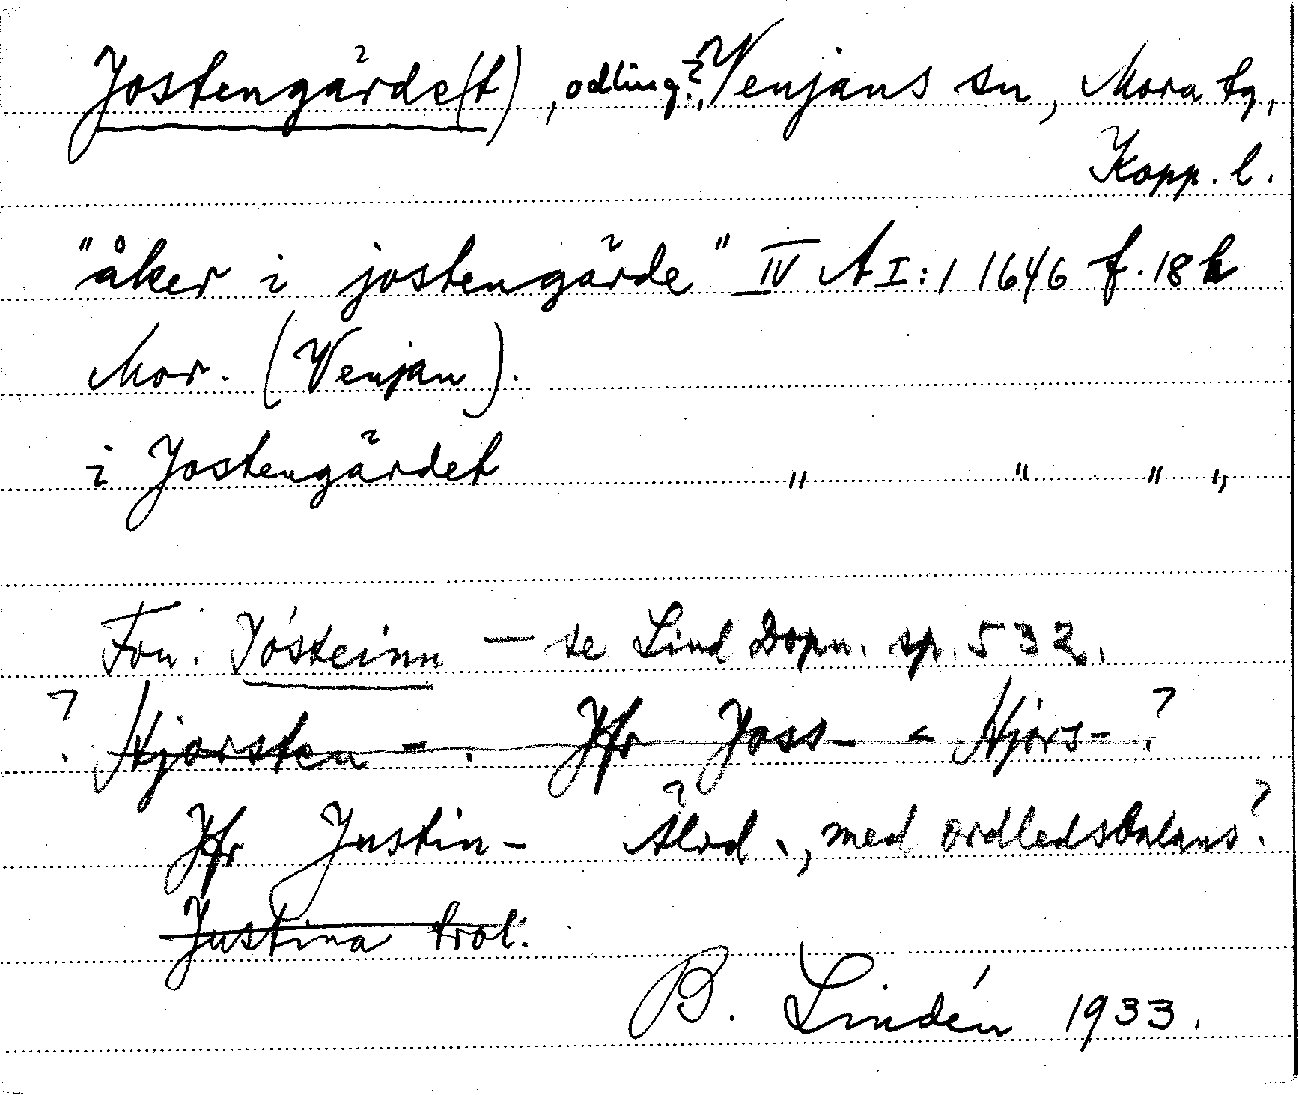 Jostengärde(t), odling?, Venjans sn, Mora tg,
Kopp. l.
"åker i jostengärde" IV A I:1 1646 f. 18
Mor. (Venjan).
i Jostengärdet " " " "
Fvn. Jósteinn — se Lind Dopn. sp. 532.
? Hjorsten - . Jfr Joss- < Hjors- ?
Jfr Justin- Älvd., med ordledsbalans?
Justina trol.
B. Lindén 1933.